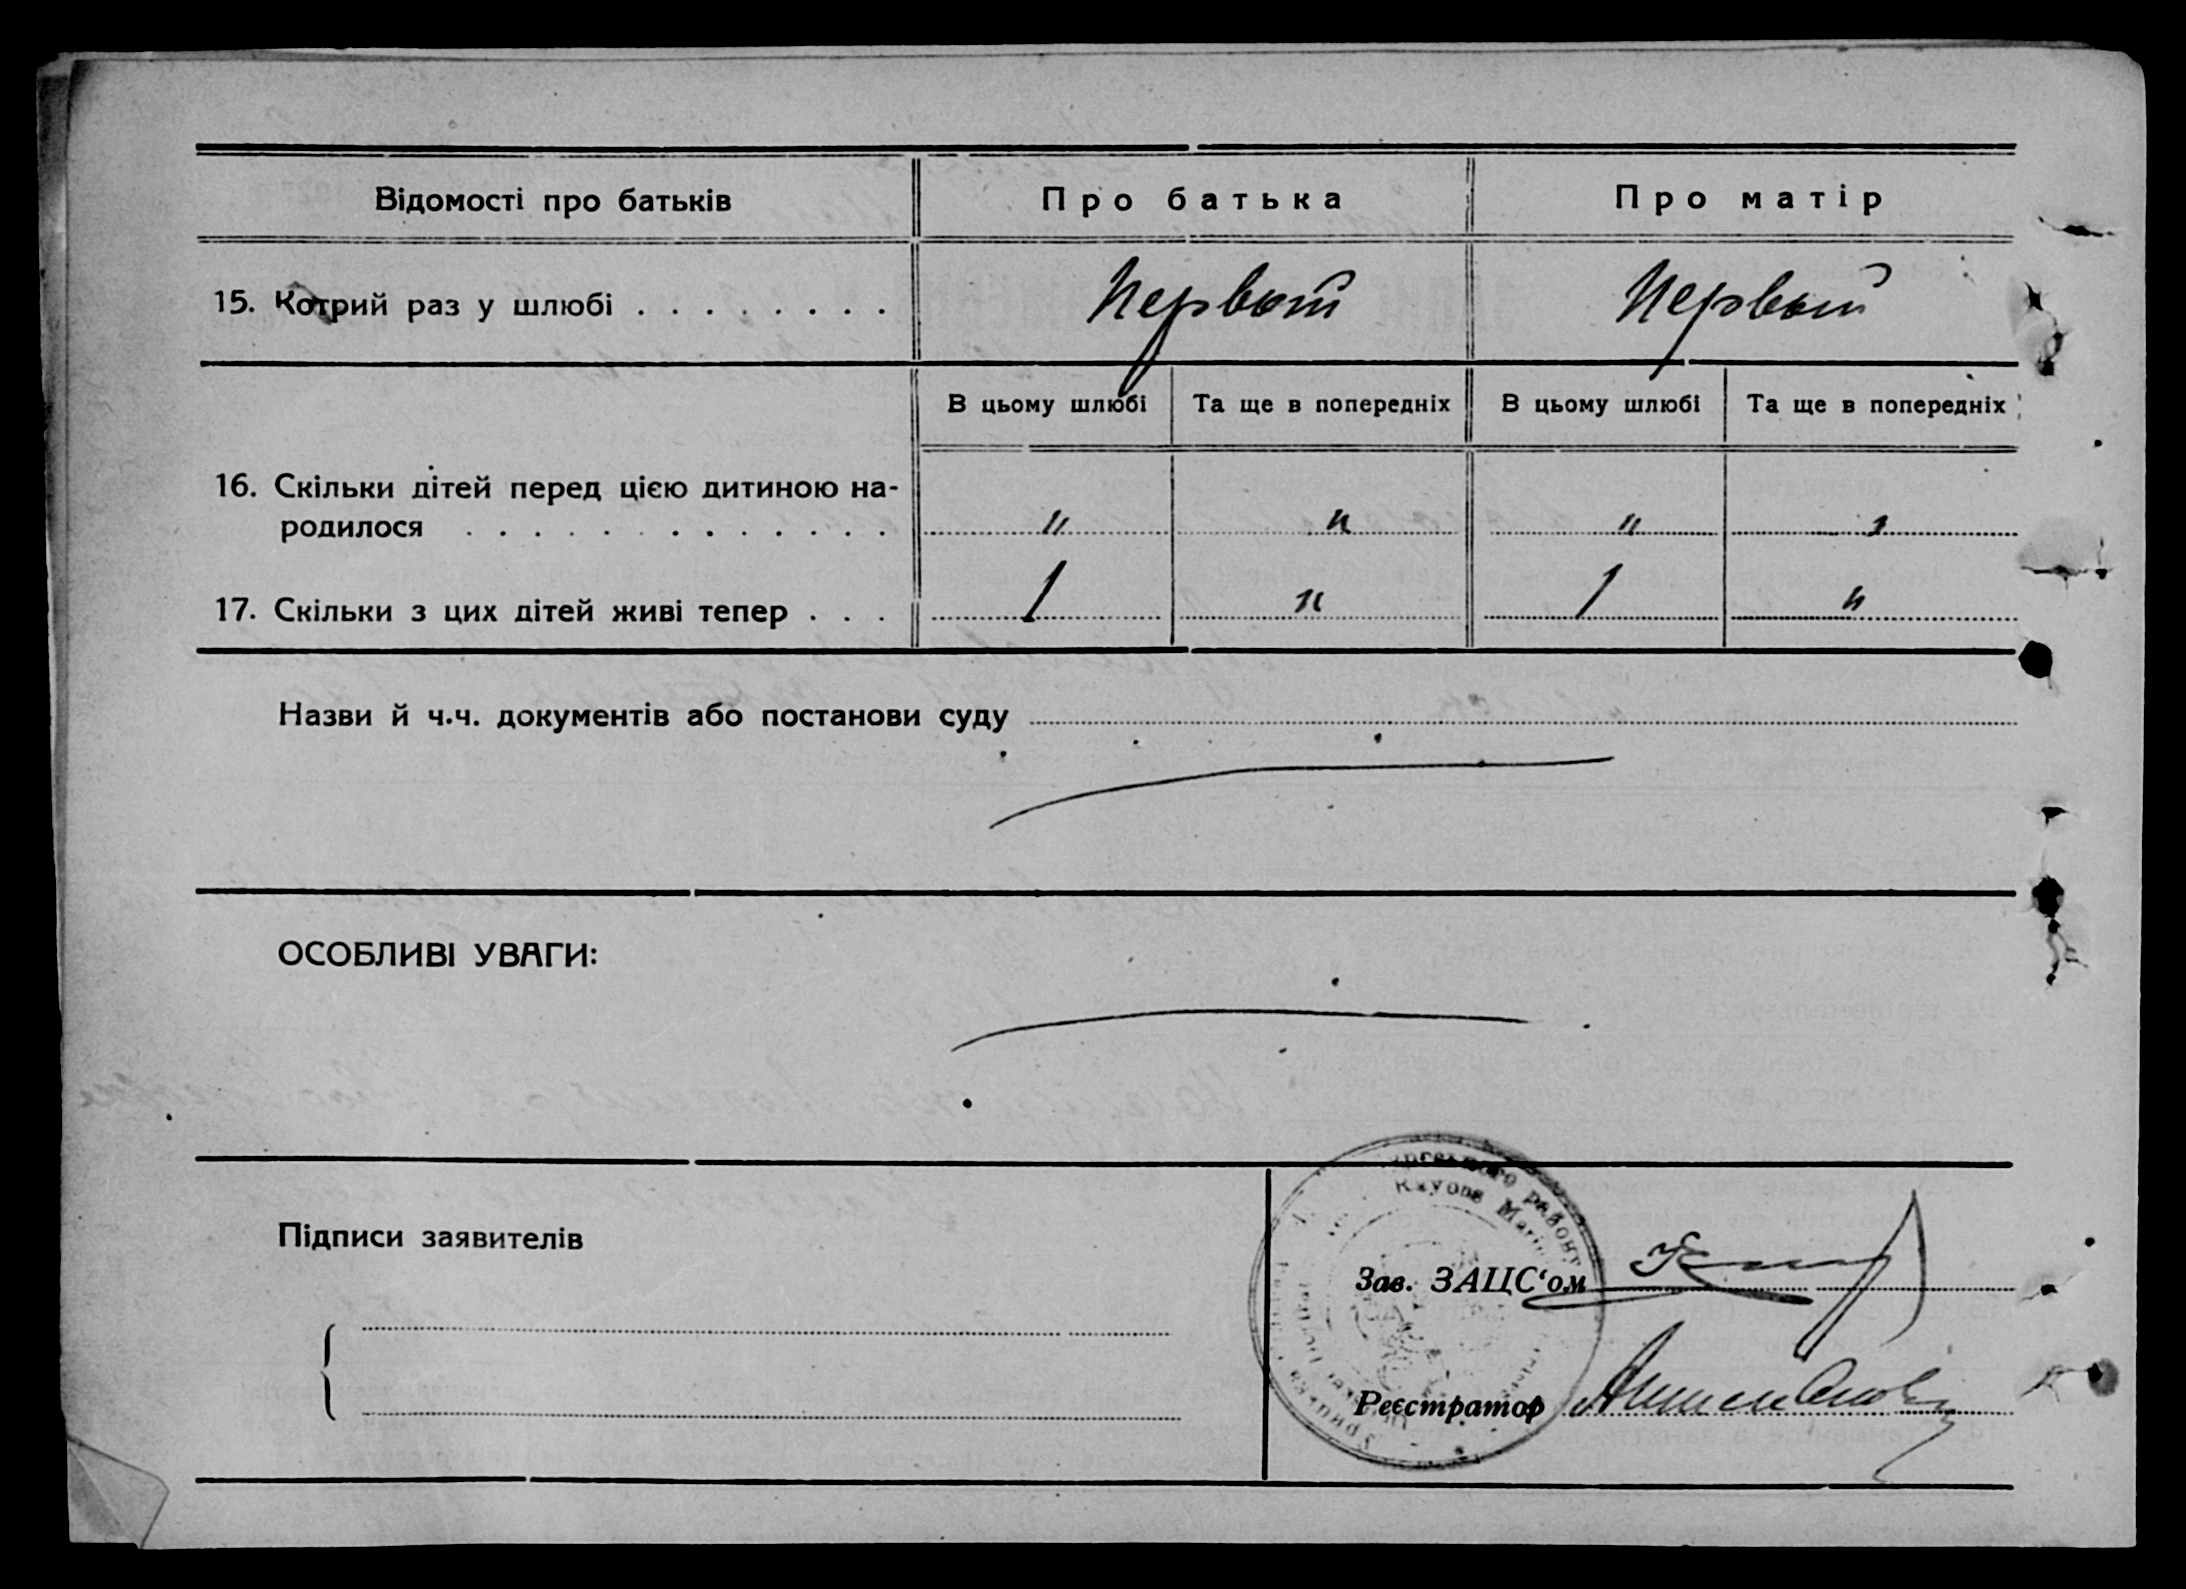 Відомості про батьків Про батька Про матір
15. Котрий раз у шлюбі . . . . . . . . Первый Первый
В цьому шлюбі Та ще в попередніх В цьому шлюбі Та ще в попередніх
16. Скільки дітей перед цією дитиною на-
родилося . . . . . . . . . . . . . " " " "
17. Скільки з цих дітей живі тепер . . . 1 " 1 "
Назви й ч.ч. документів або постанови суду
ОСОБЛИВІ УВАГИ:
району
Підписи заявителів
Зав. ЗАЦС‘ом
Реєстратор